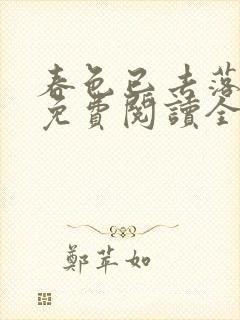 春色已去落
免費閱讀全
鄭苹如